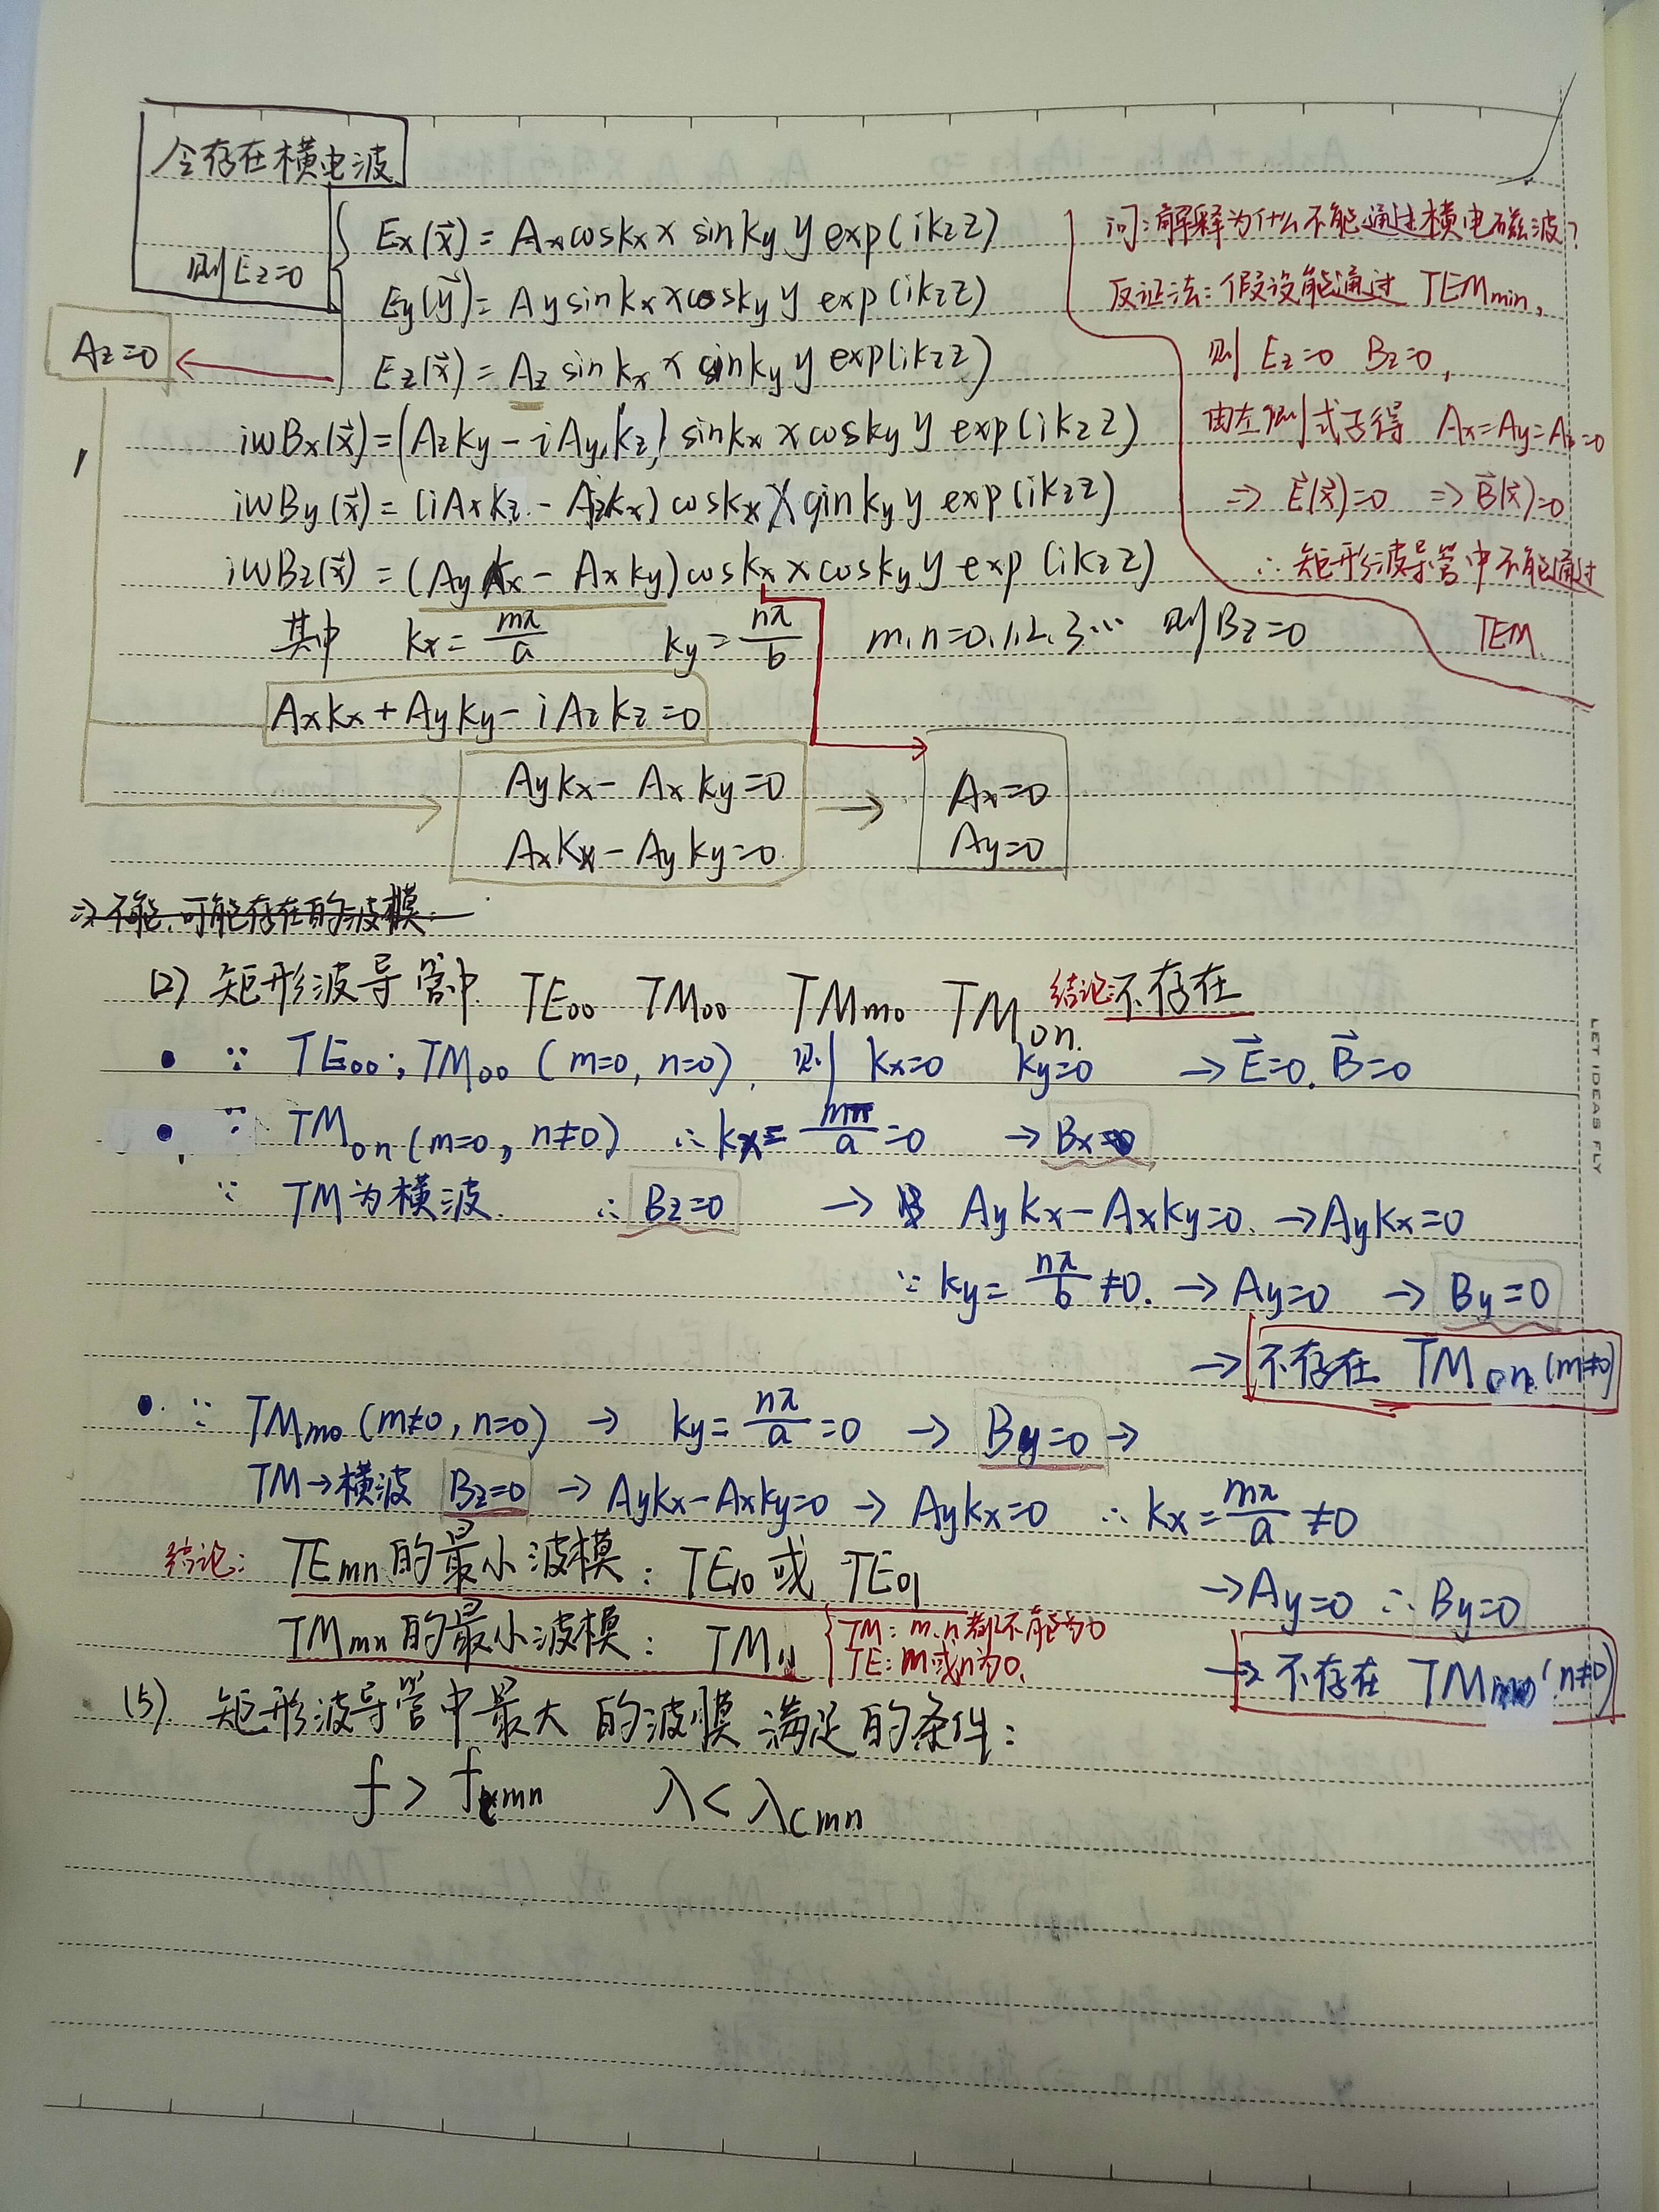 令存在横电波
则Ez=0
Ex(x⃗)=Ax cos kx x sin ky y exp(ikz z)
Ey(y⃗)=Ay sin kx x cos ky y exp(ikz z)
Ez(x⃗)=Az sin kx x sin ky y exp(ikz z)
Az=0
iωBx(x⃗)=(Az ky - iAy kz) sin kx x cos ky y exp(ikz z)
iωBy(x⃗)=(iAx kz - Az kx) cos kx x sin ky y exp(ikz z)
iωBz(x⃗)=(Ay kx - Ax ky) cos kx x cos ky y exp(ikz z)
其中 kx=mπ/a ky=nπ/b m,n=0,1,2,3… 则Bz=0
Axkx+Ayky-iAzkz=0
Aykx-Axky=0
Axkx-Ayky=0
Ax=0
Ay=0
问:解释为什么不能通过横电磁波?
反证法:假设能通过 TEMmin,
则 Ez=0 Bz=0,
由左侧式子得 Ax=Ay=Az=0
⇒E⃗(x⃗)=0 ⇒B⃗(x⃗)=0
∴矩形波导管中不能通过
TEM
不能,可能存在的波模:
(2) 矩形波导管中 TE₀₀ TM₀₀ TMm₀ TM₀n 结论:不存在
• ∵ TE₀₀;TM₀₀(m=0,n=0),则 kx=0 ky=0 →E⃗=0,B⃗=0
• ∵ TM₀n(m=0,n≠0) ∴kx=mπ/a=0 →Bx=0
∵ TM为横波 ∴Bz=0 → Aykx-Axky=0 →Aykx=0
∵ky=nπ/b≠0. →Ay=0 →By=0
→不存在 TM₀n(m≠0)
• ∵ TMm₀(m≠0,n=0) → ky=nπ/a=0 → By=0 →
TM→横波 Bz=0 → Aykx-Axky=0 → Aykx=0 ∴kx=mπ/a≠0
→Ay=0 ∴By=0
→不存在 TMm₀(n≠0)
结论: TEmn的最小波模: TE₁₀或 TE₀₁
TMmn的最小波模: TM₁₁
TM:m,n都不能为0
TE:m或n为0.
(5). 矩形波导管中最大的波膜满足的条件:
f>fcmn λ<λcmn
LET IDEAS FLY